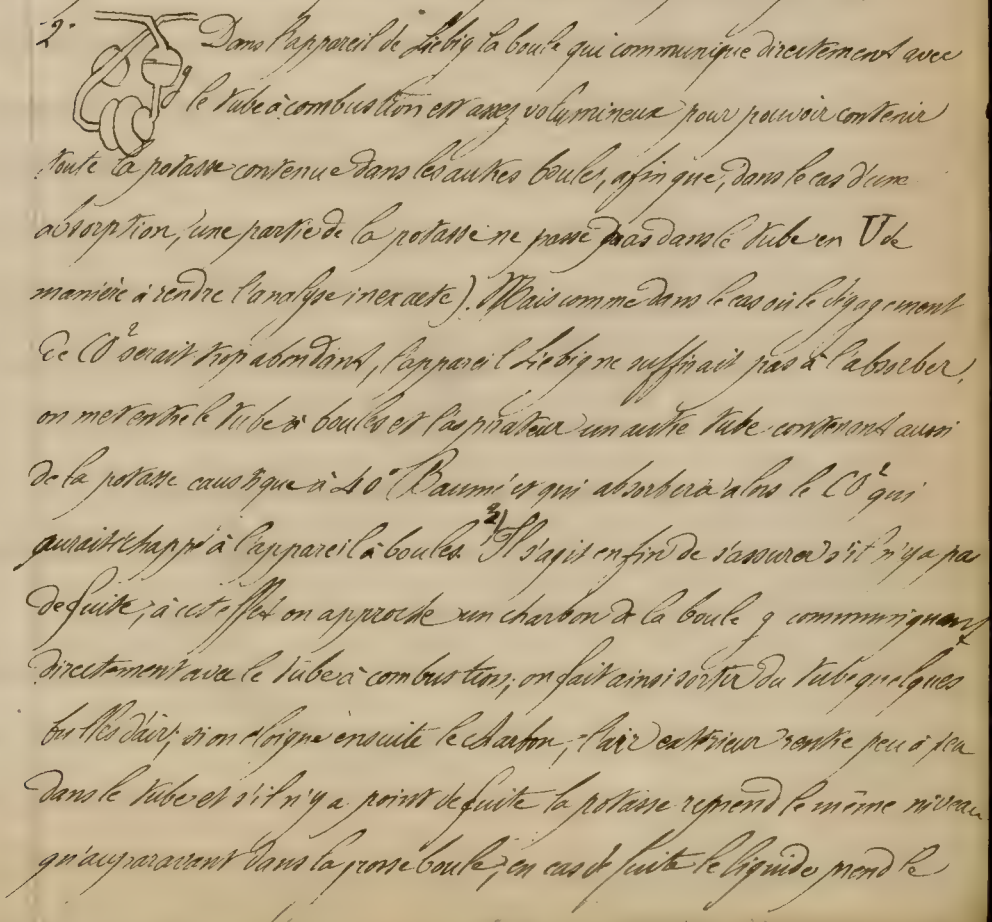 2° Dans l'appareil de Liebig la boule qui communique directement avec
g le tube à combustion est assez volumineux pour pouvoir contenir
toute la potasse contenue dans les autres boules, afin que, dans le cas d'une
absorption, une partie de la potasse ne passe pas dans le tube en U de
manière à rendre l'analyse inexacte). Mais comme dans le cas où le dégagement
de CO² serait trop abondant, l'appareil Liebig ne suffirait pas à l'absorber,
on met entre le tube à boules et l'aspirateur un autre tube contenant aussi
de la potasse caustique à 40° Baumé et qui absorbera alors le CO² qui
aurait échappé à l'appareil à boules. 3) Il s'agit enfin de s'assurer s'il n'y a pas
de fuite; à cet effet on approche un charbon de la boule g communiquant
directement avec le tube à combustion; on fait ainsi sortir du tube quelques
bulles d'air; si on éloigne ensuite le charbon, l'air extérieur rentre peu à peu
dans le tube et s'il n'y a point de fuite la potasse reprend le même niveau
qu'auparavant dans la grosse boule; en cas de fuite le liquide prend le